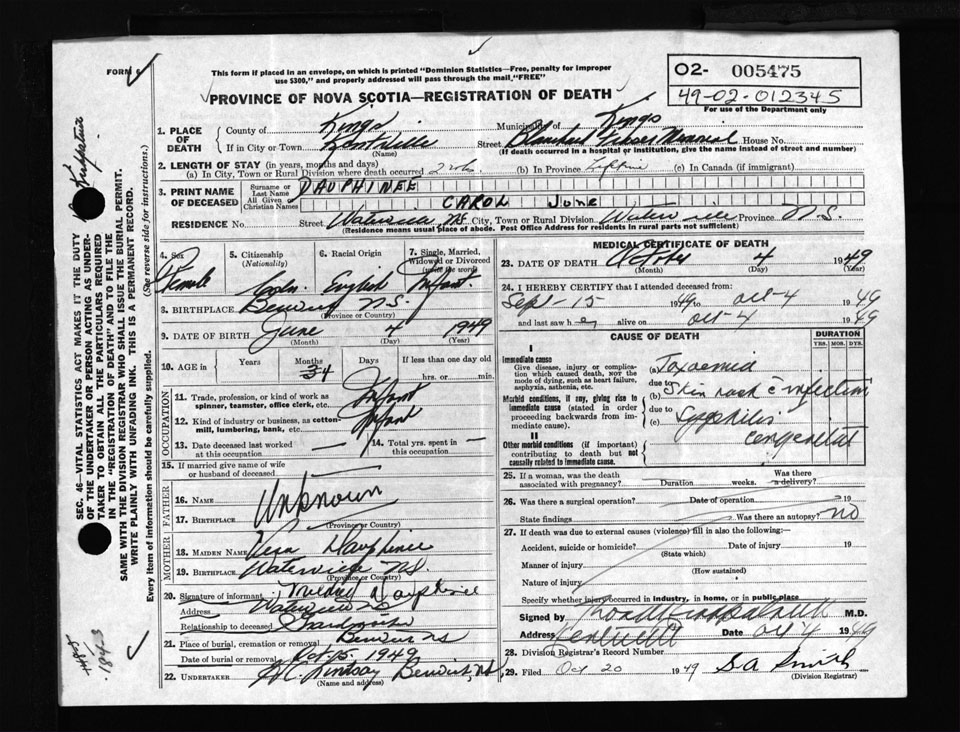 FORM 6
This form if placed in an envelope, on which is printed "Dominion Statistics—Free, penalty for improper
use $300," and properly addressed will pass through the mail, "FREE"
PROVINCE OF NOVA SCOTIA—REGISTRATION OF DEATH
O2- 005475
49-02-012345
For use of the Department only
1. PLACE OF DEATH
County of Kings Municipality of Kings
If in City or Town Kentville (Name) Street Blanchard Fraser Memorial House No.
(If death occurred in a hospital or institution, give the name instead of street and number)
2. LENGTH OF STAY (in years, months and days)
(a) In City, Town or Rural Division where death occurred (b) In Province Lifetime (c) In Canada (if immigrant)
3. PRINT NAME OF DECEASED
Surname or Last Name DAUPHINEE
All Given or Christian Names CAROL June
RESIDENCE No. Street Waterville NS City, Town or Rural Division Waterville Province N.S.
(Residence means usual place of abode. Post Office Address for residents in rural parts not sufficient)
4. Sex Female
5. Citizenship (Nationality)
6. Racial Origin English
7. Single, Married, Widowed or Divorced (write the word) Infant
8. BIRTHPLACE Berwick N.S.
(Province or Country)
9. DATE OF BIRTH June 4 1949
(Month) (Day) (Year)
10. AGE in Years Months Days If less than one day old
hrs. or min.
OCCUPATION
11. Trade, profession, or kind of work as
spinner, teamster, office clerk, etc. Infant
12. Kind of industry or business, as cotton
mill, lumbering, bank, etc. Infant
13. Date deceased last worked
at this occupation —
14. Total yrs. spent in
this occupation —
15. If married give name of wife
or husband of deceased
FATHER
16. NAME Unknown
17. BIRTHPLACE
(Province or Country)
MOTHER
18. MAIDEN NAME Vera Dauphinee
19. BIRTHPLACE Waterville N.S.
(Province or Country)
20. Signature of informant Dauphinee
Address Waterville NS
Relationship to deceased Grandmother
21. Place of burial, cremation or removal Berwick NS
Date of burial or removal Oct 5. 1949
22. UNDERTAKER Berwick, N.S.
(Name and address)
MEDICAL CERTIFICATE OF DEATH
23. DATE OF DEATH October 4 1949
(Month) (Day) (Year)
24. I HEREBY CERTIFY that I attended deceased from:
Sept-15 1949 to Oct-4 1949
and last saw her alive on Oct-4 1949
CAUSE OF DEATH
DURATION
YRS. MOS. DYS.
I
Immediate cause
Give disease, injury or complication which caused death, not the mode of dying, such as heart failure, asphyxia, asthenia, etc.
(a) Toxaemia
due to
Morbid conditions, if any, giving rise to immediate cause (stated in order proceeding backwards from immediate cause).
(b) Skin rash c infection
due to
(c) Syphilis
congenital
II
Other morbid conditions (if important) contributing to death but not causally related to immediate cause.
25. If a woman, was the death
associated with pregnancy? Duration weeks. Was there a delivery?
26. Was there a surgical operation? Date of operation 19
State findings Was there an autopsy? no
27. If death was due to external causes (violence) fill in also the following:—
Accident, suicide or homicide? Date of injury 19
(State which)
Manner of injury
(How sustained)
Nature of injury
Specify whether injury occurred in industry, in home, or in public place
Signed by M.D.
Address Kentville Date Oct 4 1949
28. Division Registrar's Record Number
29. Filed Oct 20 1949 S.A. Smith
(Division Registrar)
SEC. 46—VITAL STATISTICS ACT MAKES IT THE DUTY
OF THE UNDERTAKER OR PERSON ACTING AS UNDERTAKER TO OBTAIN ALL THE PARTICULARS REQUIRED
IN THE "REGISTRATION OF DEATH" AND TO FILE THE
SAME WITH THE DIVISION REGISTRAR WHO SHALL ISSUE THE BURIAL PERMIT.
WRITE PLAINLY WITH UNFADING INK. THIS IS A PERMANENT RECORD.
Every item of information should be carefully supplied. (See reverse side for instructions.)